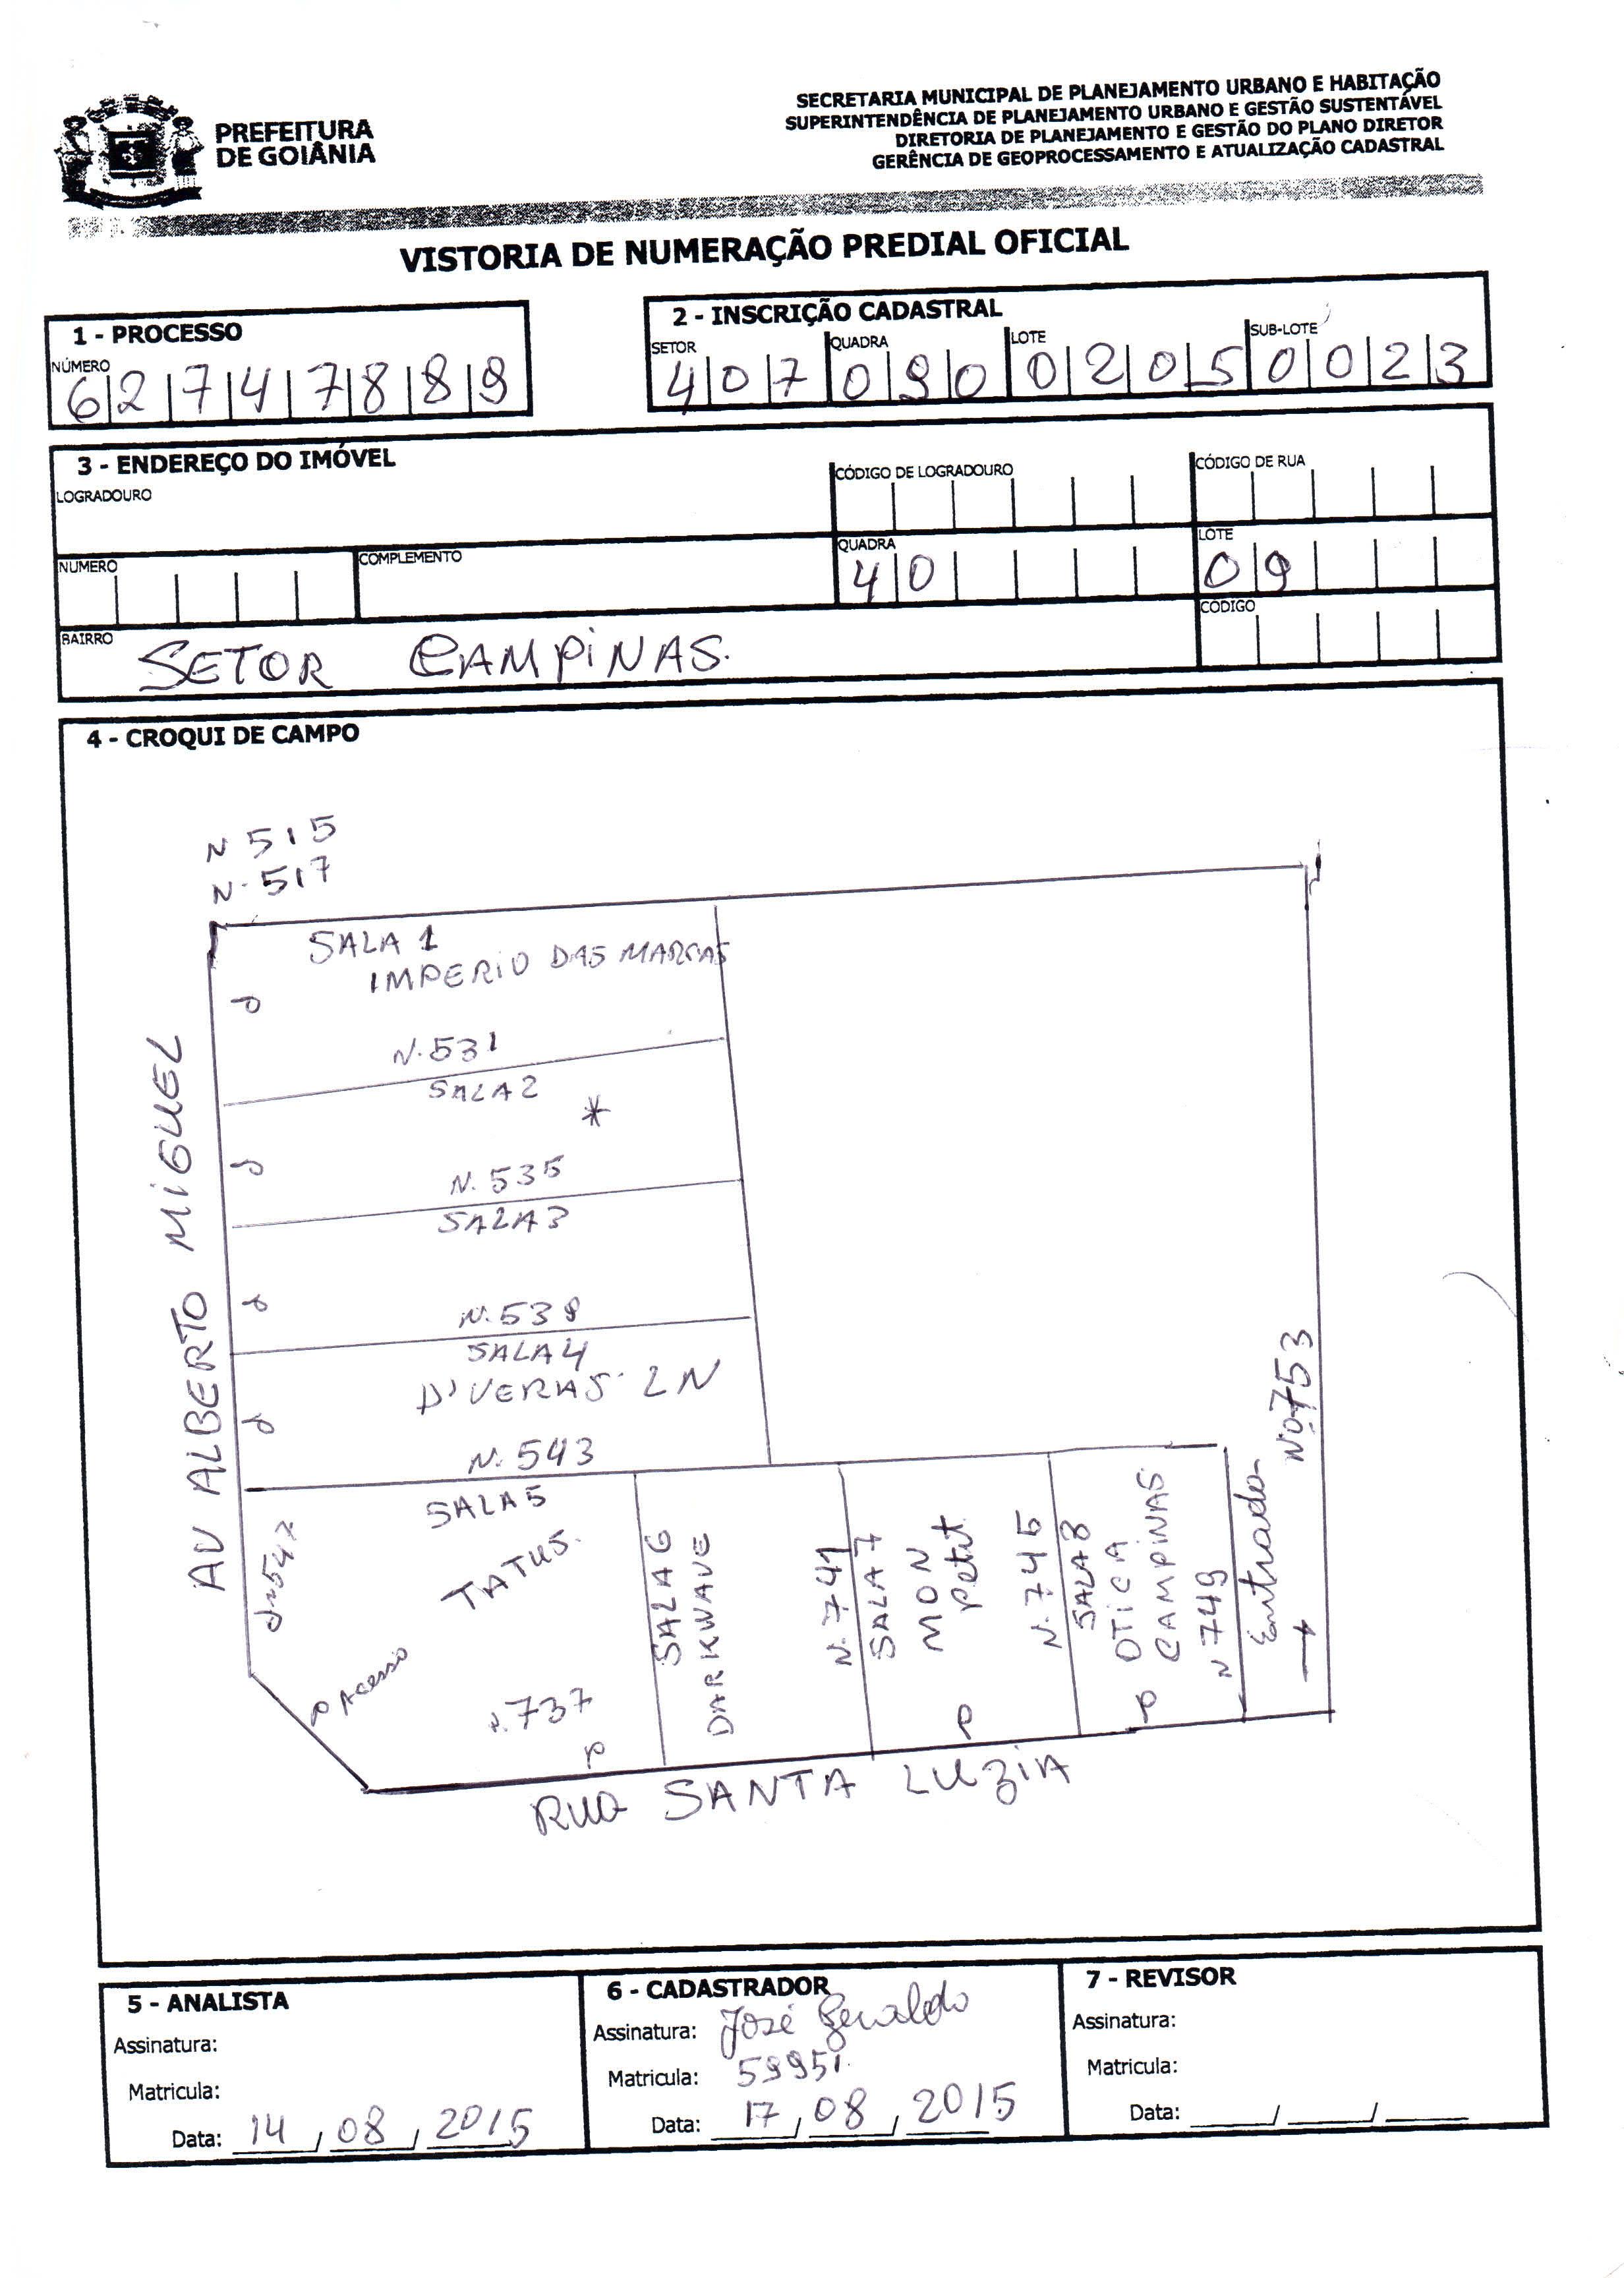 PREFEITURA
DE GOIÂNIA
SECRETARIA MUNICIPAL DE PLANEJAMENTO URBANO E HABITAÇÃO
SUPERINTENDÊNCIA DE PLANEJAMENTO URBANO E GESTÃO SUSTENTÁVEL
DIRETORIA DE PLANEJAMENTO E GESTÃO DO PLANO DIRETOR
GERÊNCIA DE GEOPROCESSAMENTO E ATUALIZAÇÃO CADASTRAL
VISTORIA DE NUMERAÇÃO PREDIAL OFICIAL
1 - PROCESSO
NÚMERO
6 2 7 4 7 8 8 9
2 - INSCRIÇÃO CADASTRAL
SETOR QUADRA LOTE SUB-LOTE
4 0 7 0 9 0 0 2 0 5 0 0 2 3
3 - ENDEREÇO DO IMÓVEL
LOGRADOURO
CÓDIGO DE LOGRADOURO
CÓDIGO DE RUA
NÚMERO
COMPLEMENTO
QUADRA
4 0
LOTE
0 9
BAIRRO
SETOR CAMPINAS.
CÓDIGO
4 - CROQUI DE CAMPO
N 515
N. 517
SALA 1
IMPERIO DAS MARCAS
N. 531
SALA 2
*
N. 535
SALA 3
N. 539
SALA 4
D'VERAS LN
N. 543
AV ALBERTO MIGUEL
SALA 5
TATUS.
P Acesso
N. 737
P
SALA 6
DARKWAVE
N. 741
SALA 7
MON
Petit
N. 745
P
SALA 8
OTICA
CAMPINAS
N 749
P
Entrada
Nº 753
RUA SANTA LUZIA
5 - ANALISTA
Assinatura:
Matricula:
Data: 14 / 08 / 2015
6 - CADASTRADOR
Assinatura: José Geraldo
Matricula: 59951.
Data: 17 / 08 / 2015
7 - REVISOR
Assinatura:
Matricula:
Data: ____/____/____